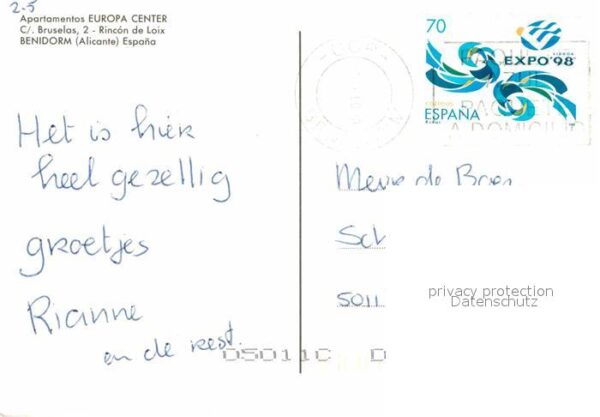 2-5
Apartamentos EUROPA CENTER
C/. Bruselas, 2 - Rincón de Loix
BENIDORM (Alicante) España
Het is hier
heel gezellig
groetjes
Rianne
en de rest.
70
LISBOA
EXPO'98
CORREOS
ESPAÑA
PAQUETE
A DOMICILIO
de
5011
privacy protection
Datenschutz
05011C D